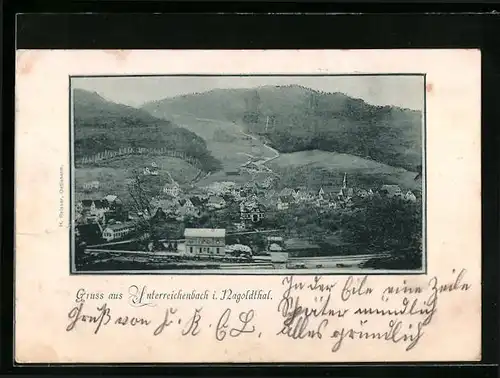 Gruss aus Unterreichenbach i. Nagoldthal.
In der Eile eine Zeile
Später mündlich
Alles gründlich
Gruß von